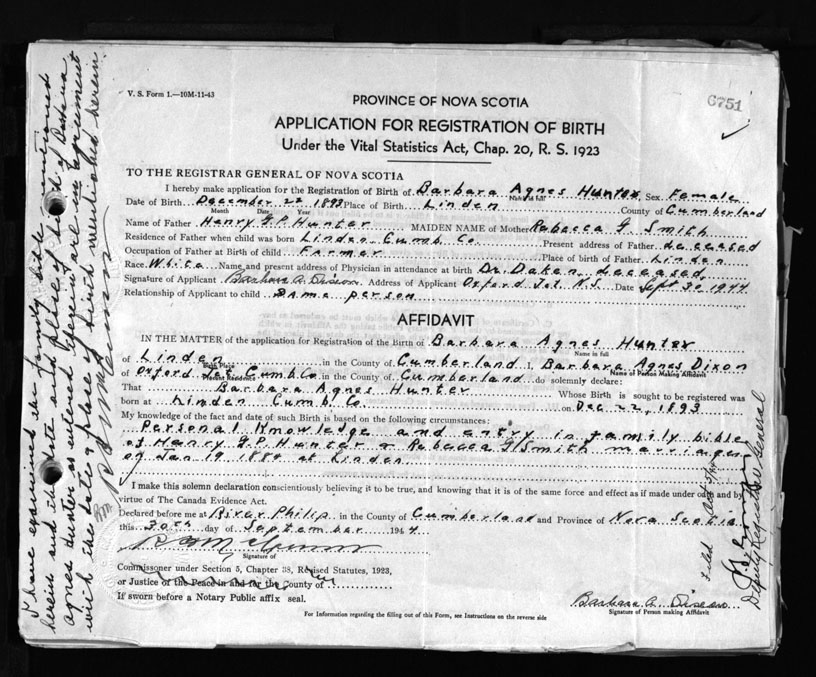 V. S. Form 1.—10M-11-43
C751
PROVINCE OF NOVA SCOTIA
APPLICATION FOR REGISTRATION OF BIRTH
Under the Vital Statistics Act, Chap. 20, R. S. 1923
TO THE REGISTRAR GENERAL OF NOVA SCOTIA
I hereby make application for the Registration of Birth of Barbara Agnes Hunter, Sex Female
Name in full
Date of Birth December 22 1893 Place of Birth Linden County of Cumberland
Month Date Year
Name of Father Henry G.P. Hunter MAIDEN NAME of Mother Rebecca G Smith
Residence of Father when child was born Linden Cumb. Co Present address of Father deceased
Occupation of Father at Birth of child Farmer Place of birth of Father Linden
Race White Name and present address of Physician in attendance at birth Dr. Daken deceased
Signature of Applicant Barbara A. Dixon Address of Applicant Oxford Jct. N.S. Date Sept 30 1944
Relationship of Applicant to child same person
AFFIDAVIT
IN THE MATTER of the application for Registration of the Birth of Barbara Agnes Hunter
Name in full
of Linden in the County of Cumberland I, Barbara Agnes Dixon
Birth Place Name of Person Making Affidavit
of Oxford Jct. Cumb Co in the County of Cumberland do solemnly declare:
Present Residence
That Barbara Agnes Hunter Whose Birth is sought to be registered was
born at Linden Cumb. Co on Dec 22, 1893
My knowledge of the fact and date of such Birth is based on the following circumstances:
Personal Knowledge and entry in family bible
of Henry G.P. Hunter & Rebecca G Smith marriage
of Jan 19 1884 at Linden
I make this solemn declaration conscientiously believing it to be true, and knowing that it is of the same force and effect as if made under oath and by
virtue of The Canada Evidence Act.
Declared before me at River Philip in the County of Cumberland and Province of Nova Scotia
this 30th day of September 1944
Signature of
Commissioner under Section 5, Chapter 38, Revised Statutes, 1923,
or Justice of the Peace in and for the County of
If sworn before a Notary Public affix seal.
Barbara A. Dixon
Signature of Person making Affidavit
For Information regarding the filling out of this Form, see Instructions on the reverse side
I have examined the family bible mentioned
herein and the date and place of birth of Barbara
Agnes Hunter as alleged against are in agreement
with the date & place of birth mentioned herein
Filed Oct
Deputy Registrar General